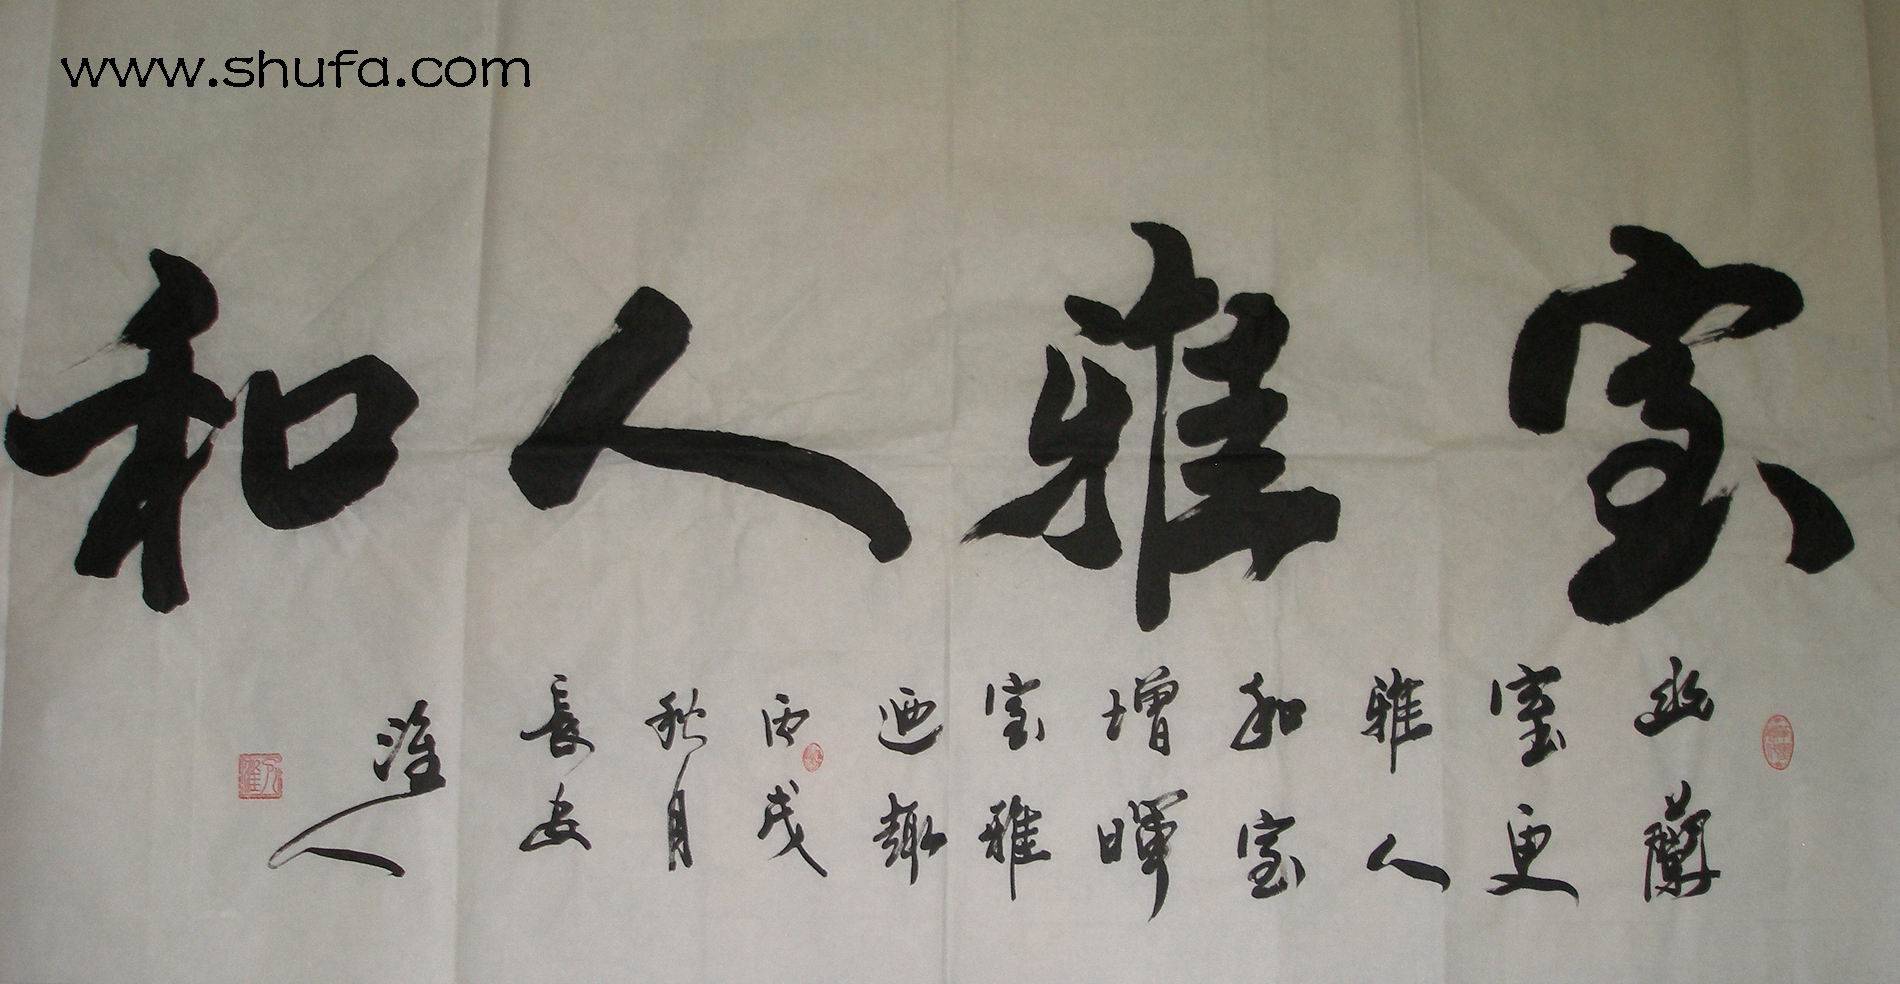 www.shufa.com
室雅人和
幽蘭
室更
雅人
和室
增暉
室雅
迺趣
丙戌
秋月
長安
淮人